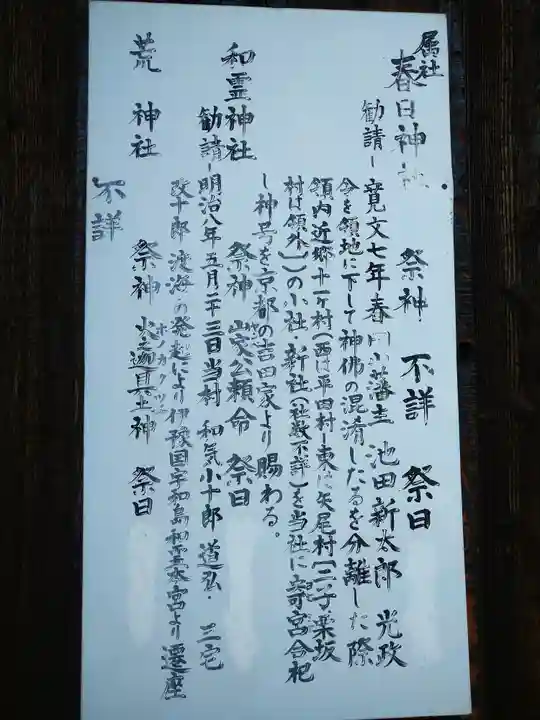 属社
春日神社
祭神 不詳 祭日
勧請ー寛文七年春 藩主 池田新太郎 光政
令を領地に下して神佛の混淆したるを分離した際
領内近郷十一ヶ村(西は平田村ー東は矢尾村[二子・栗坂
村は領外])の小社・新社(社数不詳)を当社に寄宮合祀
し神号を京都の吉田家より賜わる。
和霊神社
祭神 山家公頼命 祭日
勧請ー明治八年五月二十三日当村 和気小十郎 道弘・三宅
改十郎 渡海の発起により伊豫国宇和島和霊本宮より遷座
荒神社
祭神 火之迦具土神 祭日
不詳